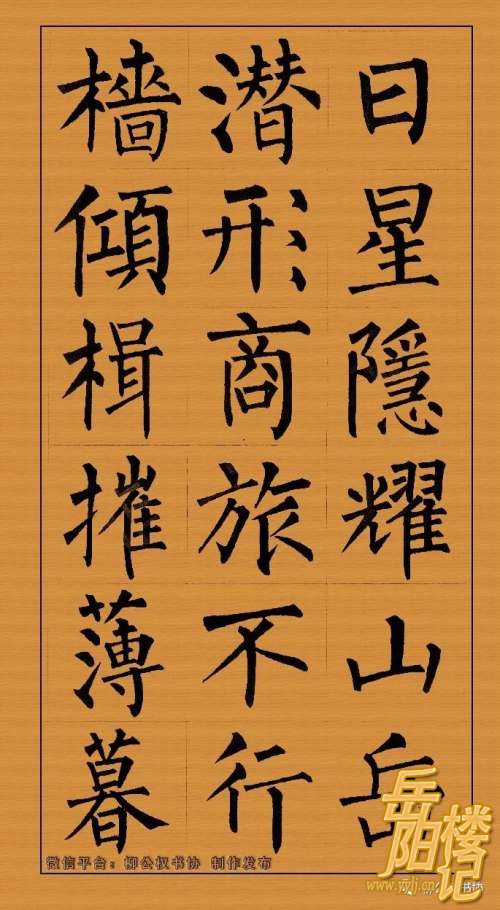 日星隱耀山岳
潜形商旅不行
檣傾楫摧薄暮
微信平台：柳公权书协 制作发布
岳阳楼记
www.yylj.cn
书协